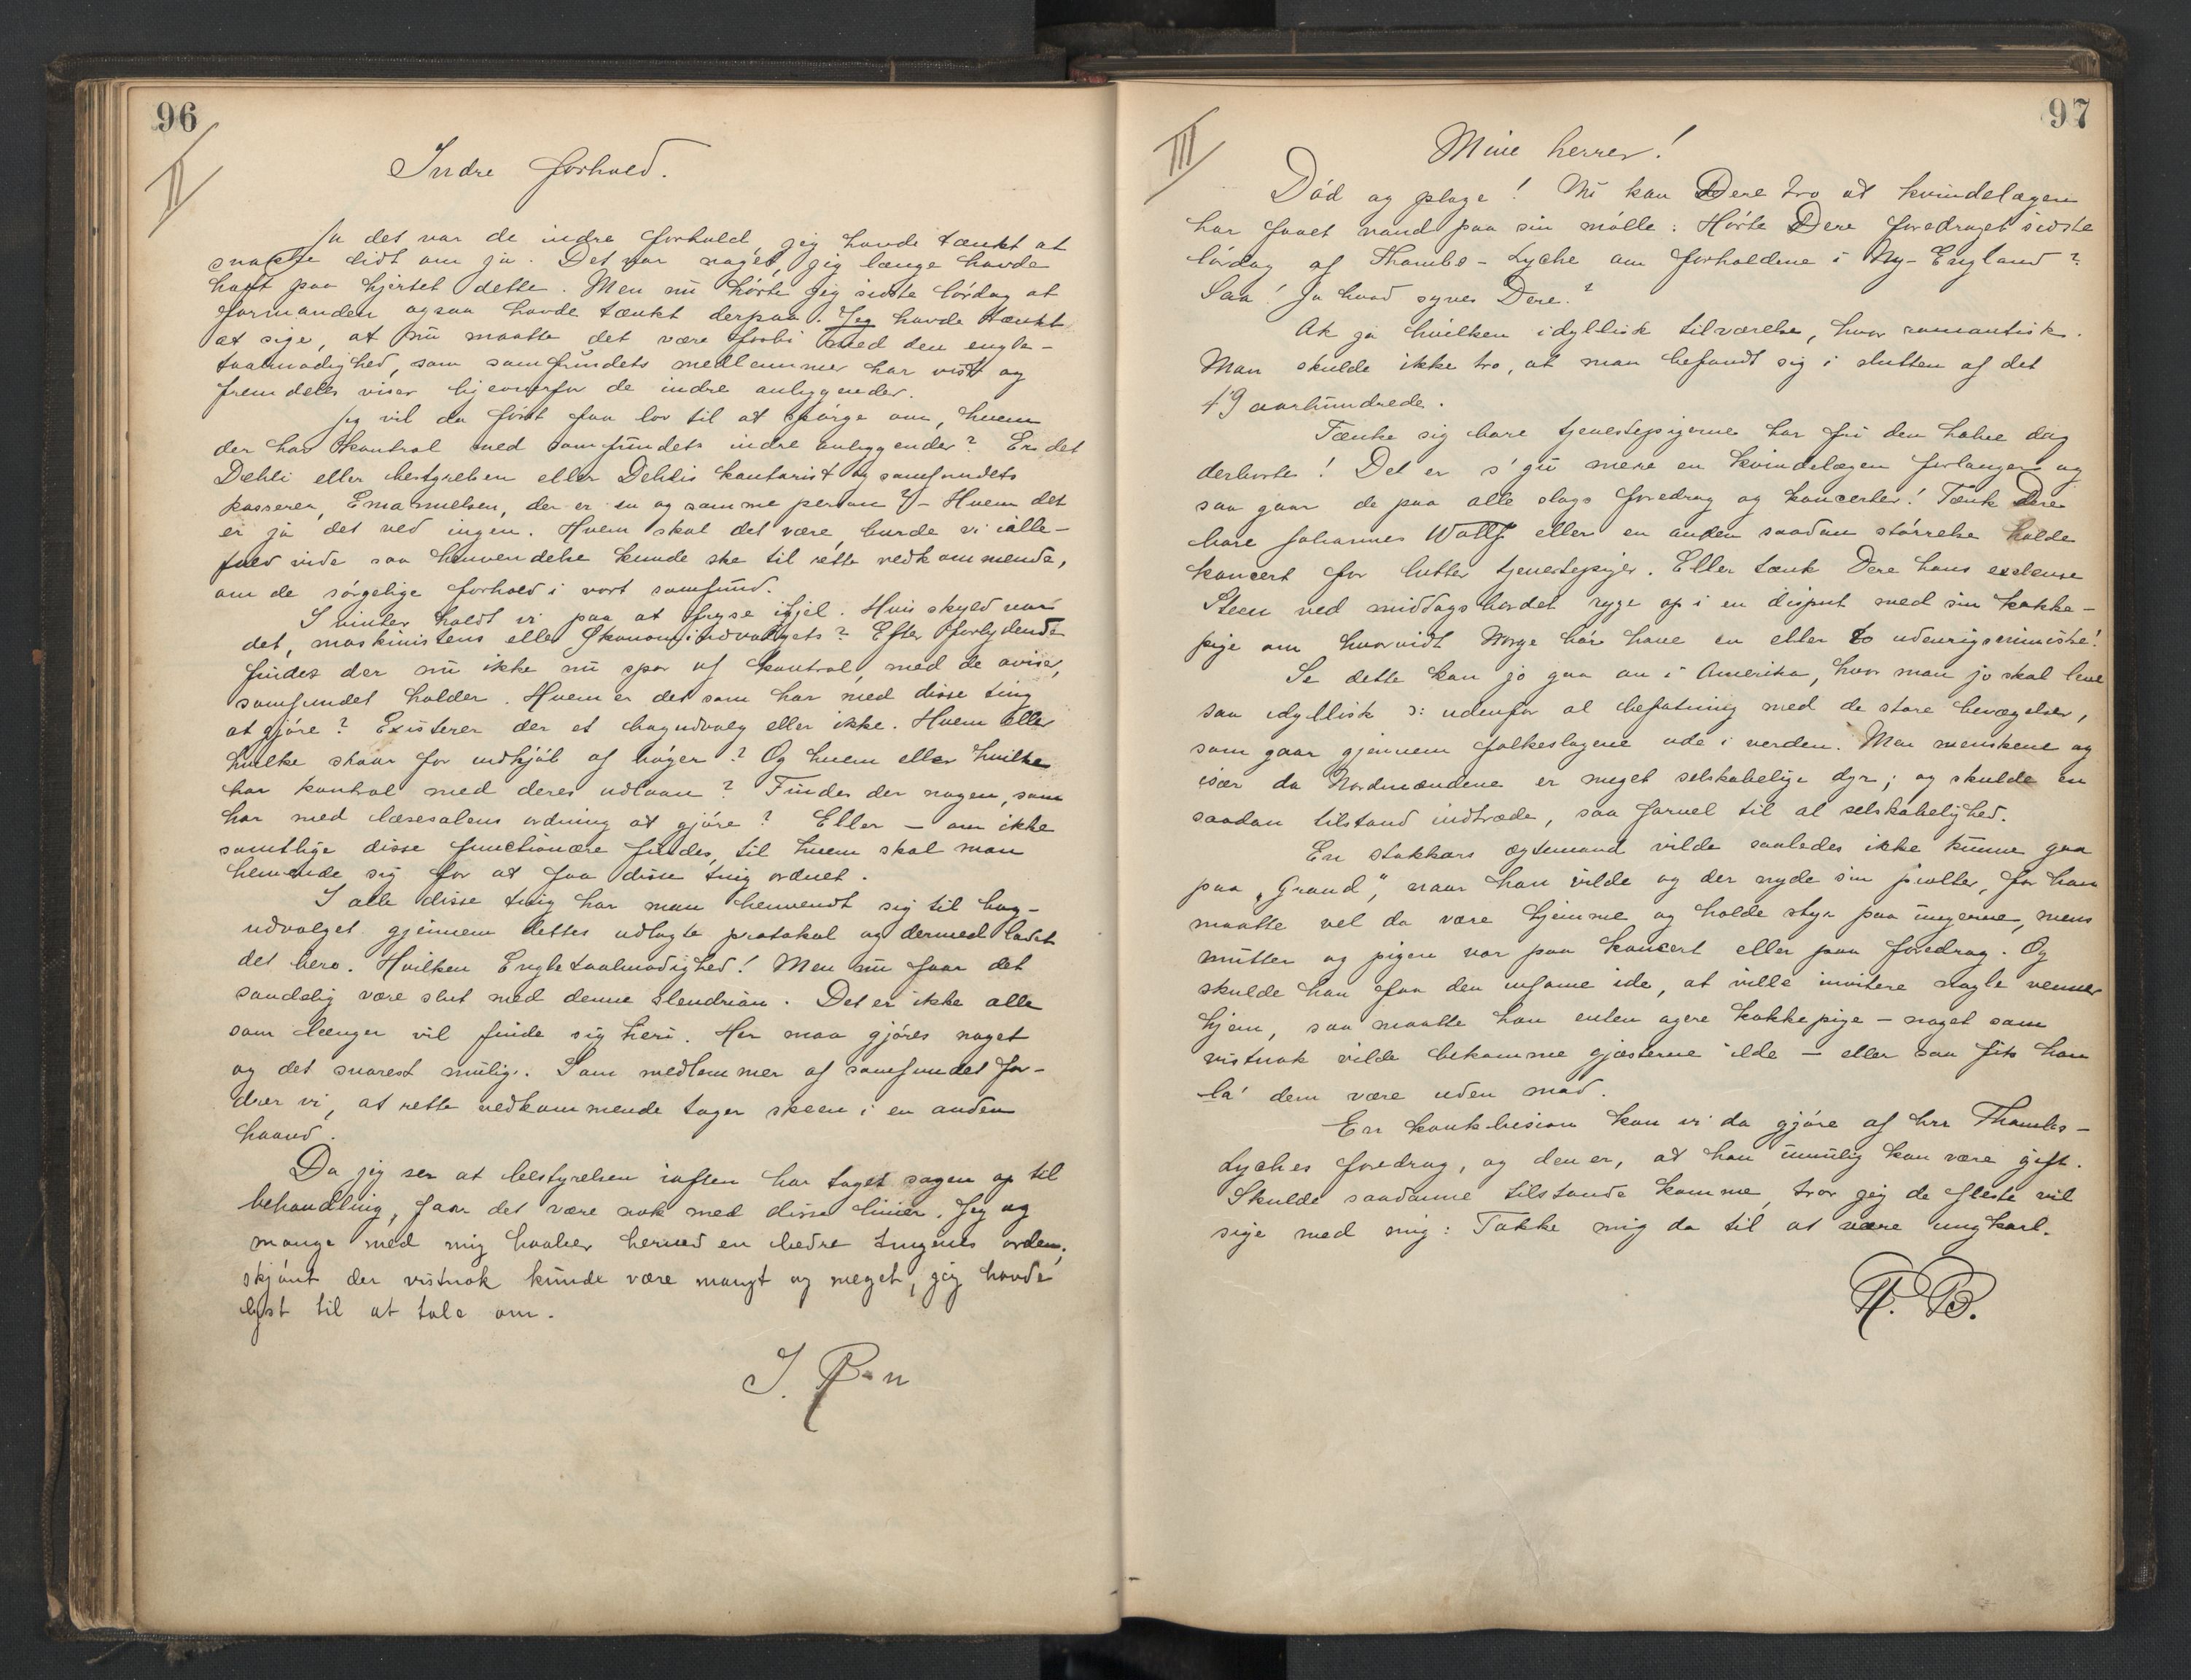 96
II
Indre forhold.
Ja det var de indre forhold, jeg havde tænkt at
snakke lidt om ja. Det var noget, jeg længe havde
havt paa hjertet dette. Men nu hørte jeg sidste lørdag at
formanden ogsaa havde tænkt derpaa. Jeg havde tænkt
at sige, at nu maatte det være forbi med den engle-
taalmodighed, som samfundets medlemmer har vist og
fremdeles viser ligeoverfor de indre anliggender.
Jeg vil da først faa lov til at spørge om, hvem
der har kontrol med samfundets indre anliggender? Er det
Dehli eller bestyrelsen eller Dehlis kontorist og samfundets
kasserer, Emanuelsen, der er en og samme person? – Hvem det
er ja det ved ingen. Hvem skal det være, burde vi ialle-
fald vide saa henvendelse kunde ske til rette vedkommende,
om de sørgelige forhold i vort samfund.
I vinter holdt vi paa at fryse ihjel. Hvis skyld var
det, maskinistens eller Økonomiudvalgets? Efter forlydende
findes der nu ikke nu spor af kontrol, med de aviser,
samfundet holder. Hvem er det som har med disse ting
at gjøre? Existerer der et bogudvalg eller ikke. Hvem eller
hvilke staar for indkjøb af bøger? Og hvem eller hvilke
har kontrol med deres udlaan? Findes der nogen, som
har med læsesalens ordning at gjøre? Eller – om ikke
samtlige disse functionære findes, til hvem skal man
henvende sig for at faa disse ting ordnet.
I alle disse ting har man henvendt sig til bog-
udvalget gjennem dettes udlagte protokol og dermed ladet
det bero. Hvilken Engletaalmodighed! Men nu faar det
sandelig være slut med denne slendrian. Det er ikke alle
som længer vil finde sig heri. Her maa gjøres noget
og det snarest mulig. Som medlemmer af samfundet for-
drer vi, at rette vedkommende tager skeen i en anden
haand.
Da jeg ser at bestyrelsen iaften har taget sagen op til
behandling, faar det være nok med disse linier. Jeg og
mange med mig haaber herved en bedre tingenes orden,
skjønt der vistnok kunde være mangt og meget, jeg havde
lyst til at tale om.
J. R–n
97
III
Mine herrer!
Død og plage! Nu kan Dere tro at kvindelagen
har faaet vand paa sin mølle: Hørte Dere foredraget sidste
lørdag af Thambs-Lyche om forholdene i Ny-England?
Saa! Ja hvad synes Dere?
Ak ja hvilken idyllisk tilværelse, hvor romantisk.
Man skulde ikke tro, at man befandt sig i slutten af det
19 aarhundrede.
Tænke sig bare tjenestepigerne har fri den halve dag
derborte! Det er s'gu mere en kvindelagen forlanger og
saa gaar de paa alle slags foredrag og koncerter! Tænk Dere
bare Johannes Wolff eller en anden saadan størrelse holde
koncert for lutter tjenestepiger. Eller tænk Dere hans exelense
Steen ved middagsbordet ryge op i en disput med sin kokke-
pige om hvorvidt Norge bør have en eller to udenrigsministre!
Se dette kan jo gaa an i Amerika, hvor man jo skal leve
saa idyllisk ɔ: udenfor al befatning med de store bevægelser,
som gaar gjennem folkeslagene ude i verden. Men menskene og
især da Nordmændene er meget selskabelige dyr; og skulde en
saadan tilstand indtræde, saa farvel til al selskabelighed.
En stakkars ægtemand vilde saaledes ikke kunne gaa
paa „Grand", naar han vilde og der nyde sin pjolter, for han
maatte vel da være hjemme og holde styr paa ungerne, mens
mutter og pigen var paa koncert eller paa foredrag. Og
skulde han faa den infame ide, at ville invitere nogle venner
hjem, saa maatte han enten agere kokkepige – noget som
vistnok vilde bekomme gjæsterne ilde – eller saa fik han
la' dem være uden mad.
En konklusion kan vi da gjøre af hrr Thambs-
Lyches foredrag, og den er, at han umulig kan være gift.
Skulde saadanne tilstande komme, tror jeg de fleste vil
sige med mig: Takke mig da til at være ungkarl.
R. B.